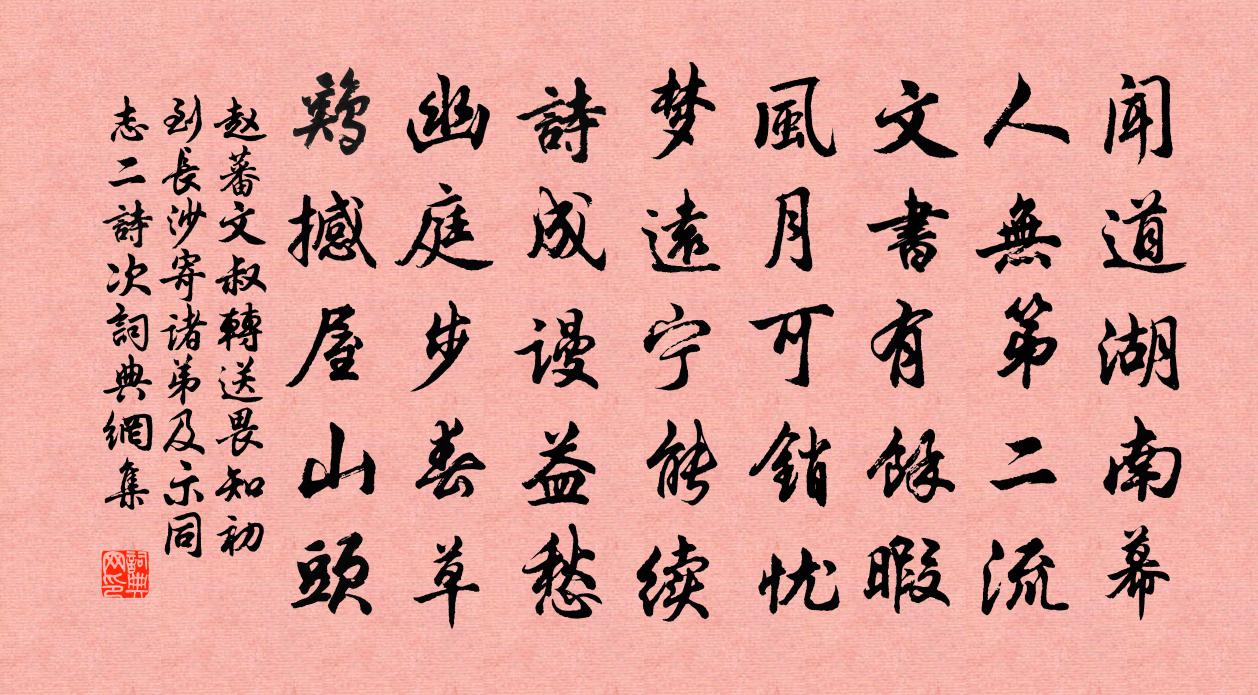 闻道湖南幕
人無第二流
文書有餘暇
風月可銷忧
梦遠宁能续
詩成谩益愁
幽庭步春草
鷄撼屋山頭
赵蕃文叔轉送畏知初
到長沙寄诸弟及示同
志二詩次詞典網集
詞典网印